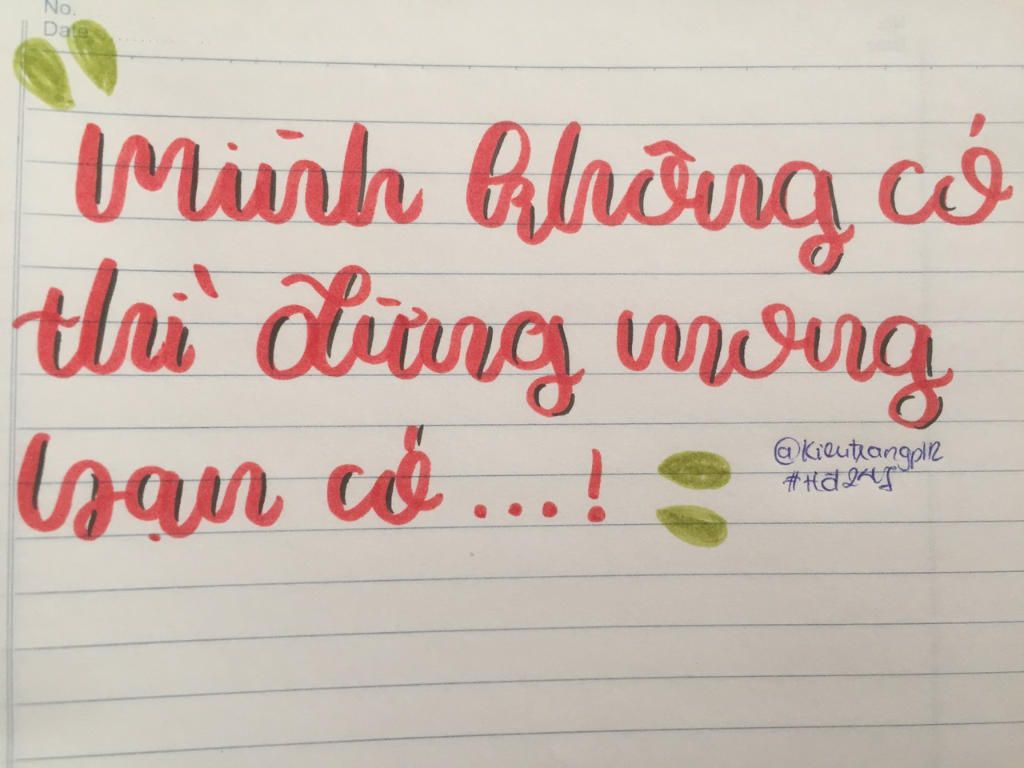 No.
Date
Mình không có
thì đừng mong
bạn có ...!
@kieutrangph2